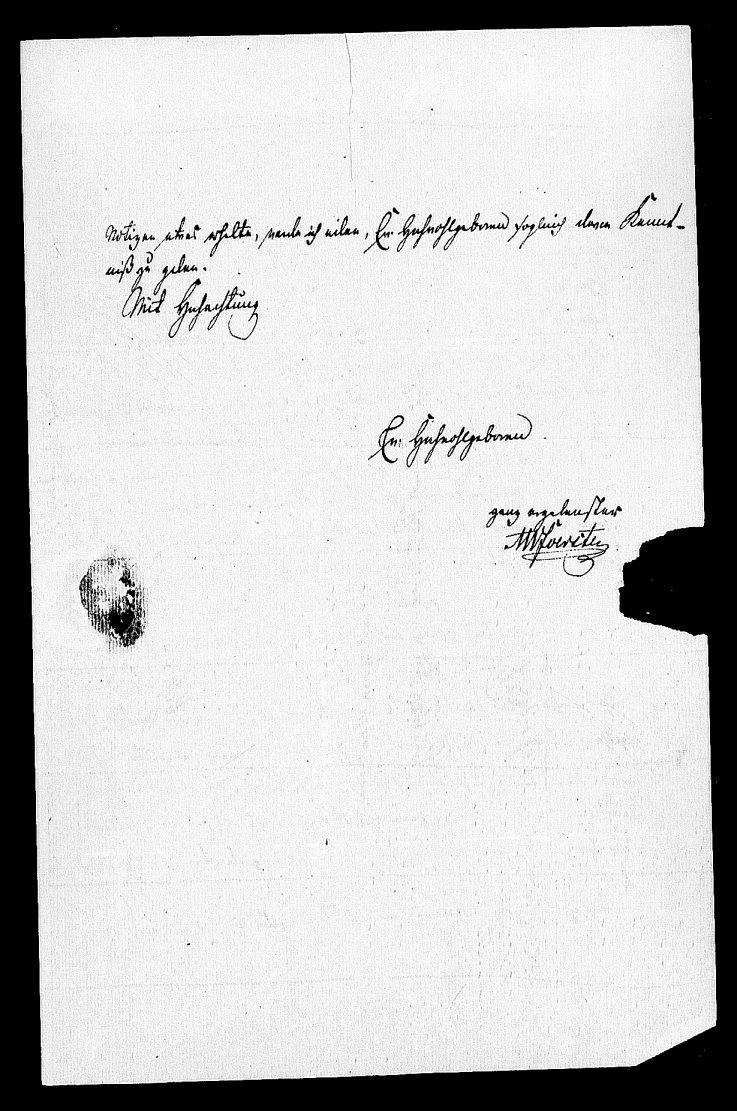 Notizen etwas erhalte, werde ich eilen, Ew. Hochwohlgeboren sogleich davon Kennt-
niß zu geben.
Mit Hochachtung
Ew. Hochwohlgeboren
ganz ergebenster
Foerster